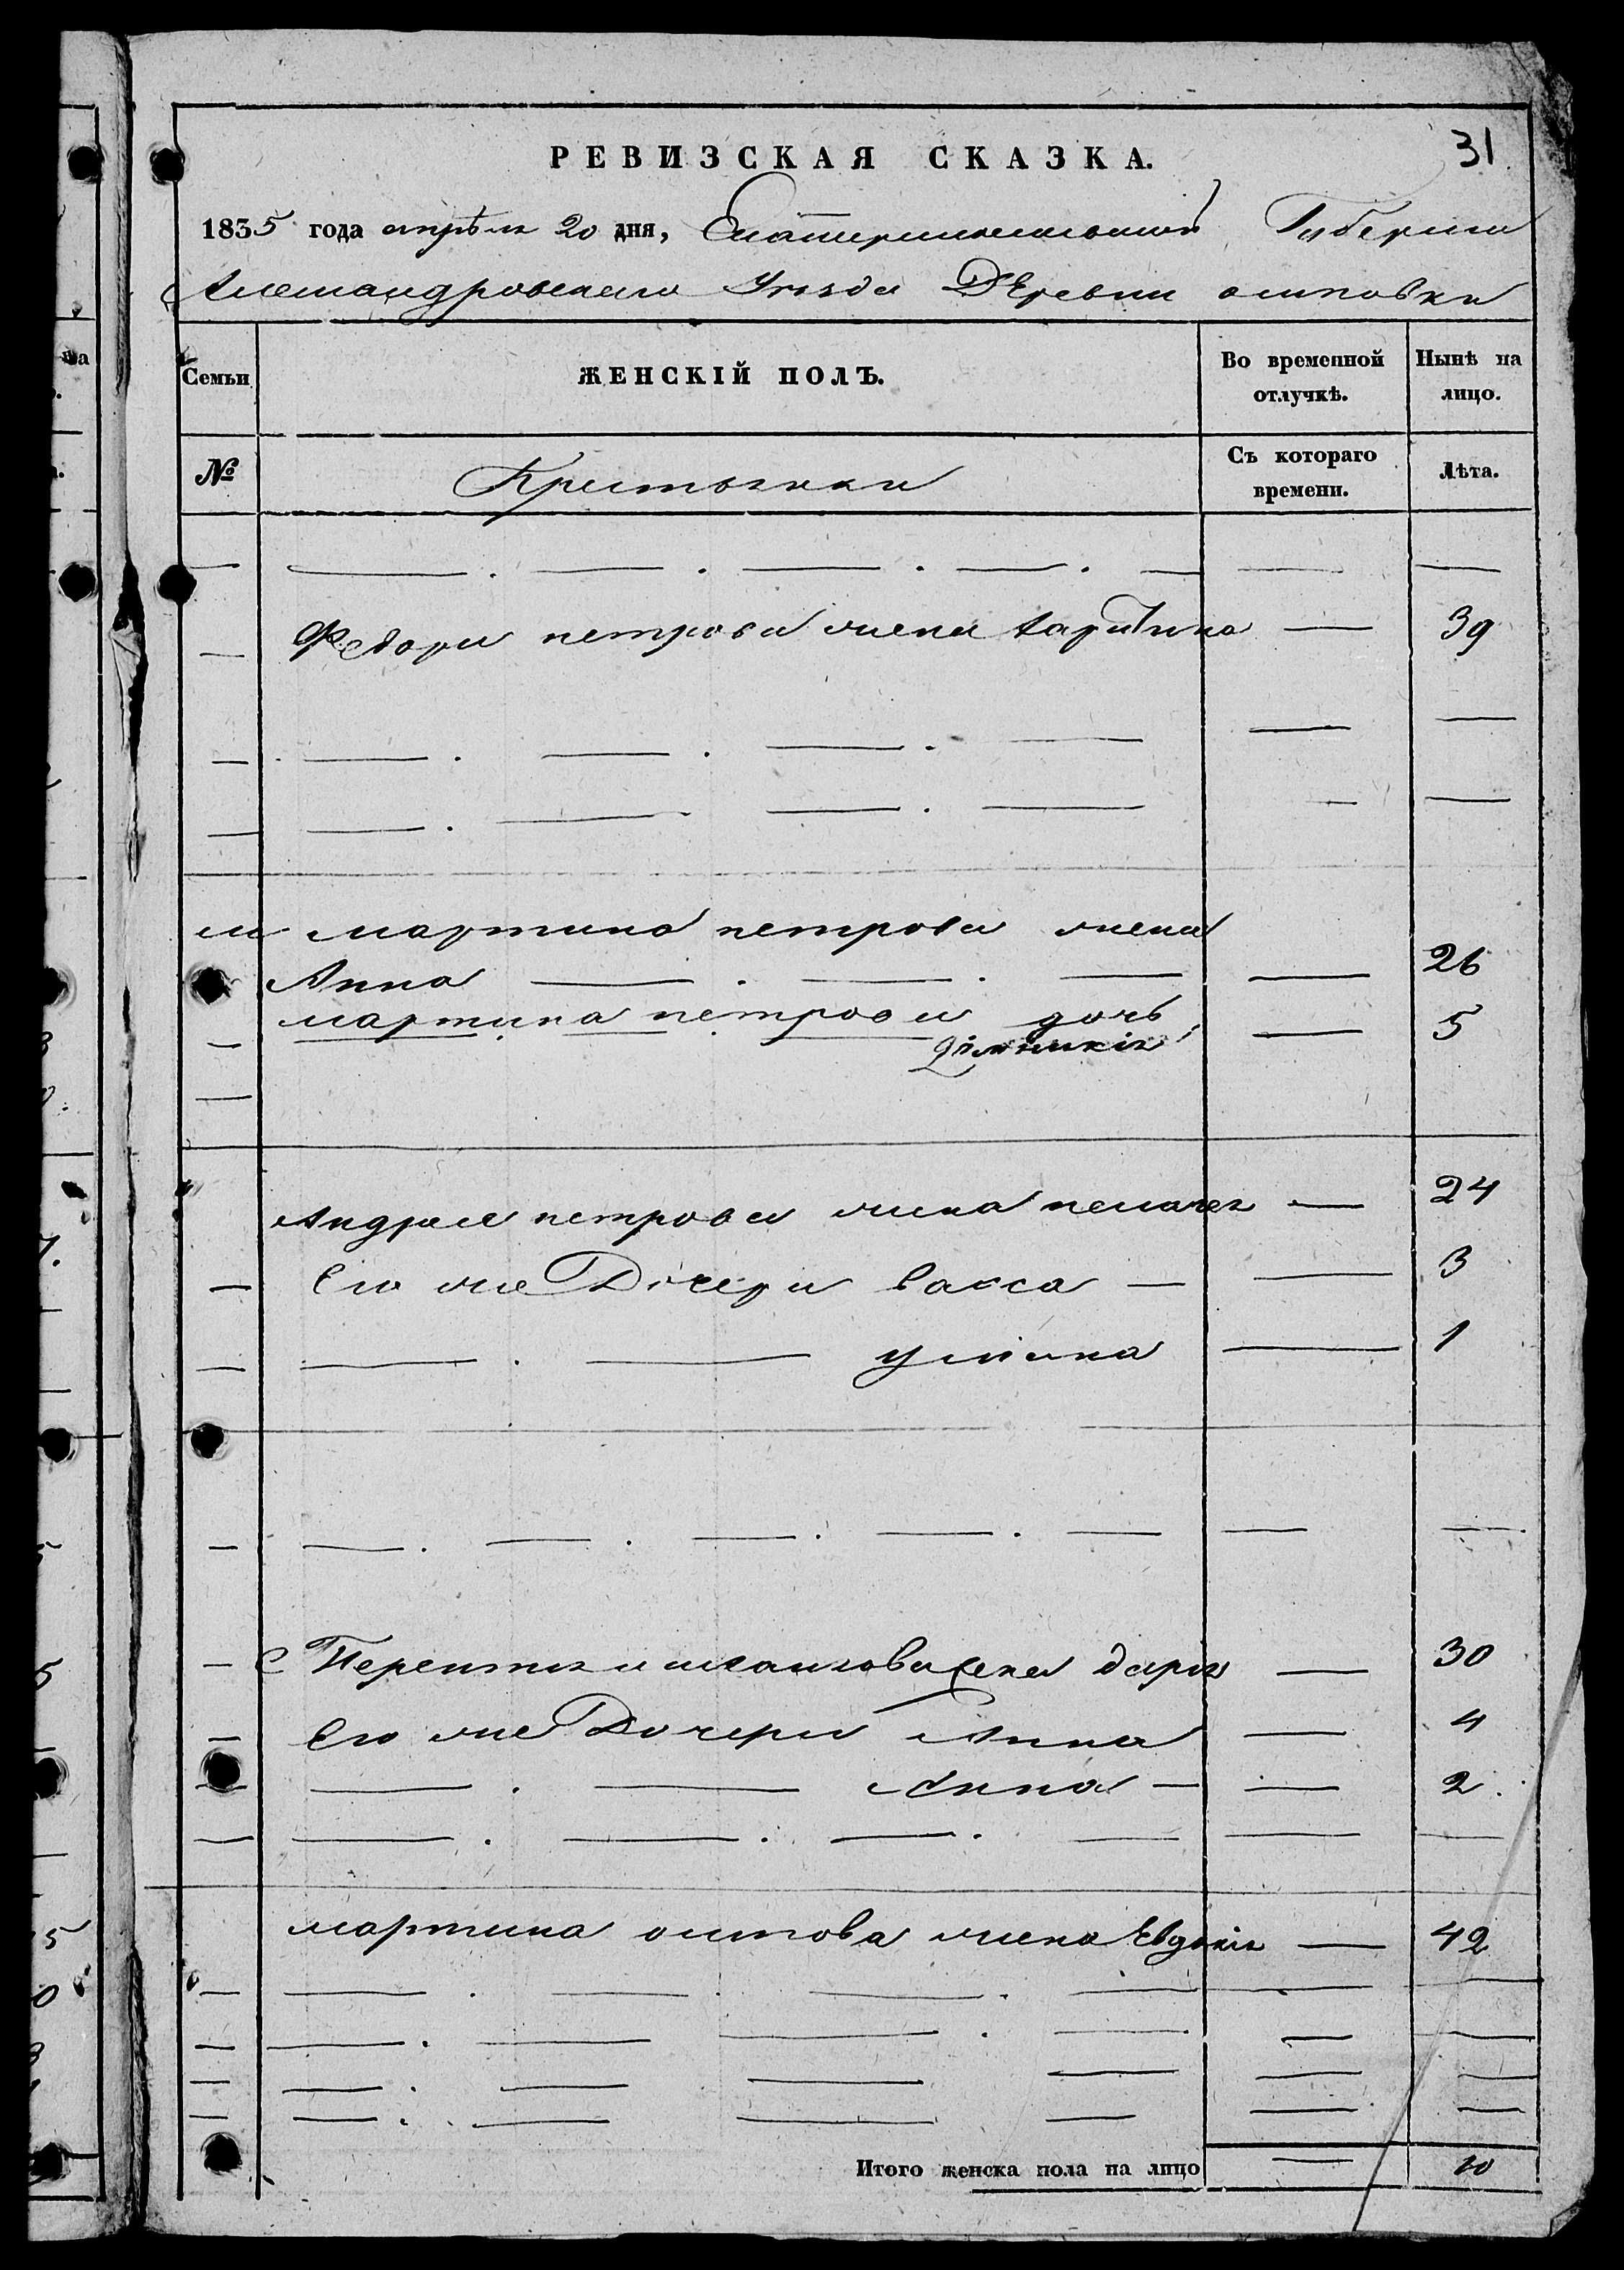 РЕВИЗСКАЯ СКАЗКА.
31.
1835 года апрѣля 20 дня, Екатеринославской Губернии
Александровскаго Уѣзда Деревни осиповки
Семьи
ЖЕНСКІЙ ПОЛЪ.
Во временной отлучкѣ.
Нынѣ на лицо.
№
Крестьянки
Съ котораго времени.
Лѣта.
Федора петрова жена 39
мартина петрова жена
Анна 26
мартина петрова дочь 5
Андрея петрова жена пелагея 24
Его же Дочери васса 3
улияна 1
жена дарья 30
Его же Дочери Анна 4
Анна 2
мартина осипова жена Евдокія 42
Итого женска пола на лицо 10